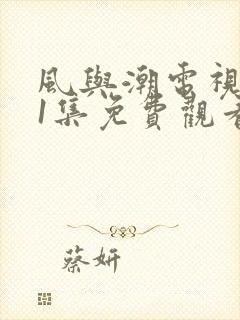 風與潮電視
1集免費觀看
蔡妍